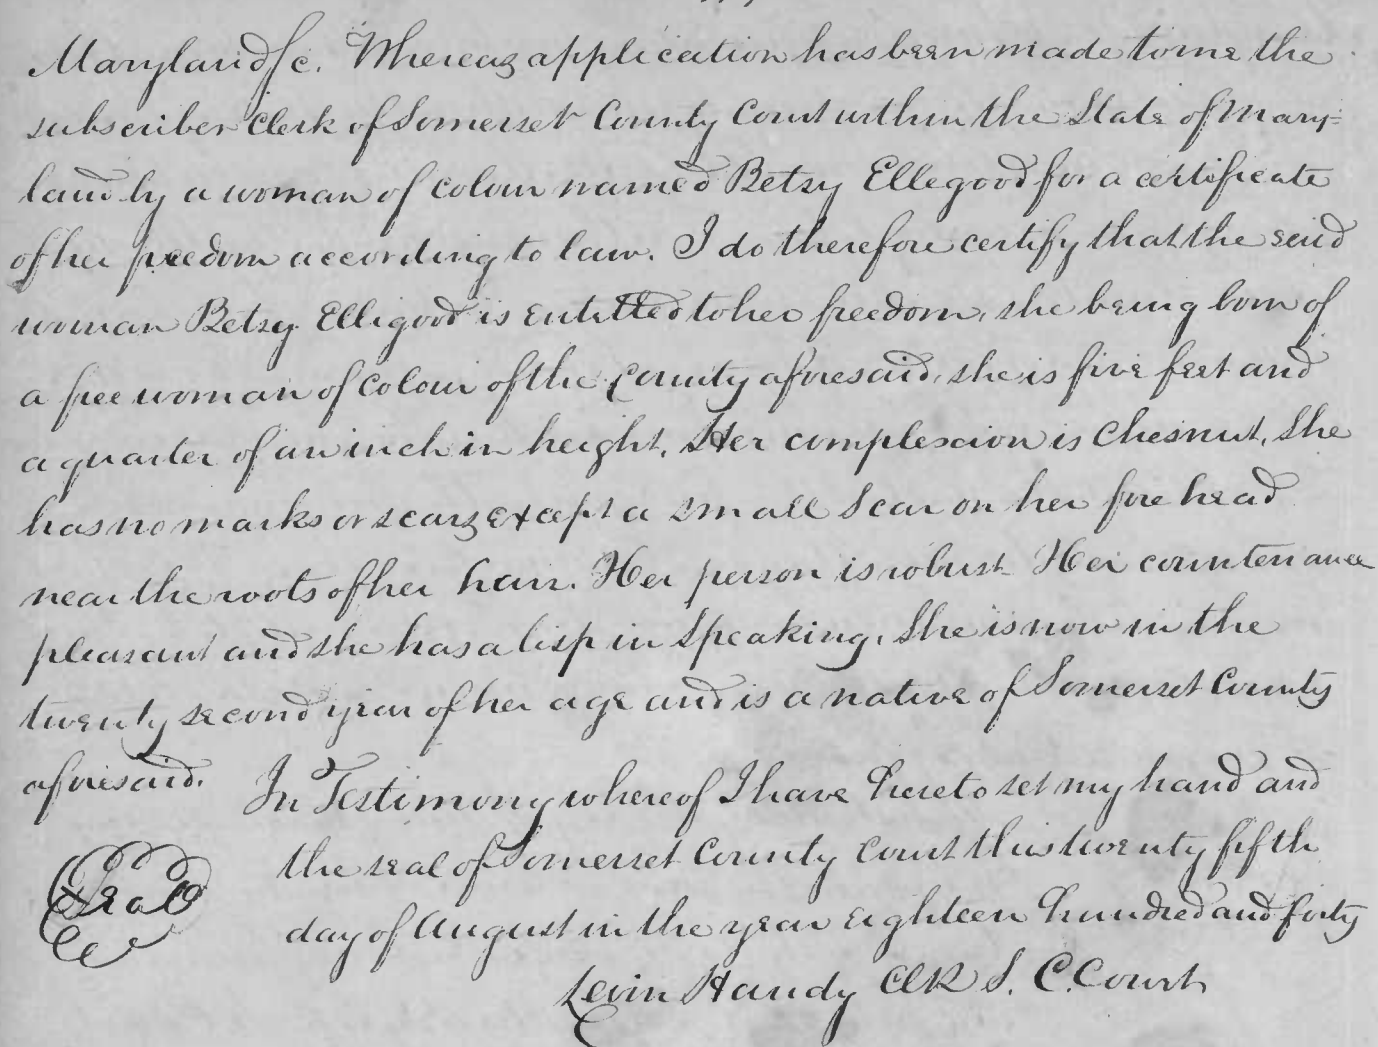 Maryland Sc. Whereas application has been made to me the
subscriber Clerk of Somerset County Court within the State of Mary=
land by a woman of colour named Betsy Ellegood for a certificate
of her freedom according to law. I do therefore certify that the said
woman Betsy Elligood is entitled to her freedom, she being born of
a free woman of colour of the County aforesaid, she is five feet and
a quarter of an inch in height. Her complexion is Chesnut, She
has no marks or scars except a small Scar on her fore head
near the roots of her hair. Her person is robust Her countenance
pleasant and she has a lisp in Speaking. She is now in the
twenty second year of her age and is a native of Somerset County
aforesaid.
In Testimony whereof I have hereto set my hand and
the seal of Somerset County Court this twenty fifth
Seal
day of August in the year eighteen hundred and forty
Levin Handy Clk S. C. Court